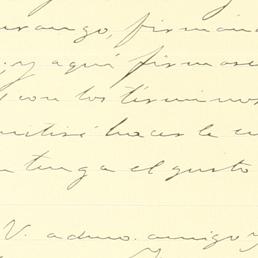 urango, firmán
y aquí firmose
con los términos
mitiré hacer le
tenga el gusto
V. admo. amigo y